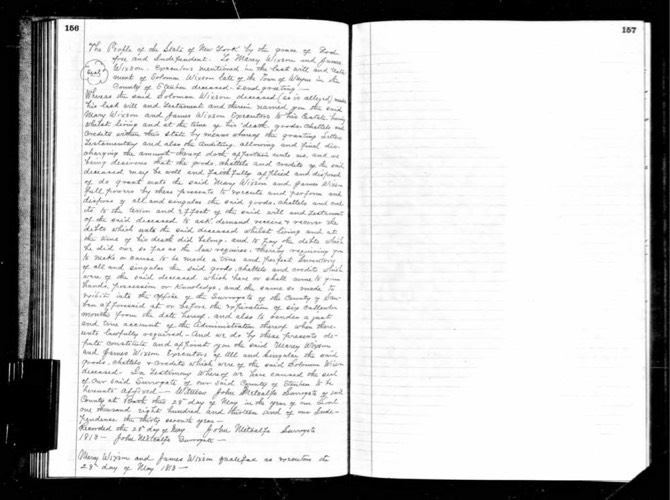 156
157
The People of the State of New York by the grace of God
free and Independent. To Marcy Wixson and James
Wixson. Executors mentioned in the last will and testa
Seal
ment of Solomon Wixson late of the Town of Wayne in the
County of Steuben deceased send greeting —
Whereas the said Solomon Wixson, deceased (as is alleged) made
his last will and testament and therein named you the said
Mary Wixson and James Wixson Executors to his Estate, having
whilst living and at the time of his death, goods, chattels and
credits within this State by means whereof the granting letters
testamentary and also the auditing, allowing and final dis-
charging the amount thereof doth appertain unto us, and we
being desirous that the goods, chattels and credits of the said
deceased may be well and faithfully applied and disposed
of do grant unto the said Mary Wixson and James Wixson
full power by these presents to execute and perform and
dispose of all and singular the said goods, chattels and cred
its to the tenor and effect of the said will and testament
of the said deceased to ask, demand receive & recover the
debts which unto the said deceased whilst living and at
the time of his death did belong, and to pay the debts which
he did owe so far as the law requires, thereby requiring you
to make or cause to be made a true and perfect Inventory
of all and singular the said goods, chattels and credits which
were of the said deceased which have or shall come to your
hands, possession or knowledge, and the same so made to
exhibit into the office of the Surrogate of the County of Steu
ben aforesaid at or before the expiration of six callender
months from the date hereof, and also to render a just
and true account of the Administration thereof when there-
unto lawfully required — And we do by these presents de-
pute constitute and appoint you the said Marcy Wixson
and James Wixson Executors of all and singular the said
goods, chattels & credits which were of the said Solomon Wixson
deceased. In Testimony Whereof we have caused the seal
of our said Surrogate of our said County of Steuben to be
hereunto affixed — Witness John Metcalfe Surrogate of said
County at Bath the 28" day of May in the year of our Lord
one thousand eight hundred and thirteen and of our Inde-
pendence the thirty seventh year —
Recorded the 28" day of May John Metcalfe Surrogate
1813 — John Metcalfe Surrogate —
Marcy Wixson and James Wixson qualified as executors the
28" day of May 1813 —